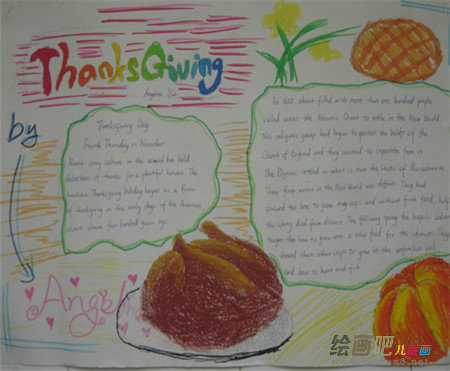 ThanksGiving
by
Angelina
Thanksgiving Day
Fourth Thursday in November
Almost every culture in the world has held
celebrations of thanks for a plentiful harvest. The
American Thanksgiving holiday began as a feast
of thanksgiving in the early days of the American
almost four hundred years ago.
In 1620, a boat filled with more than one hundred people
sailed across the Atlantic Ocean to settle in the New World.
This religious group had begun to question the beliefs of the
Church of England and they wanted to separate from it.
The Pilgrims settled in what is now the state of Massachusetts.
Their first winter in the New World was difficult. They had
arrived too late to grow many crops and without fresh food, half
the colony died from disease. The following spring the Iroquois Indians
taught them how to grow corn a new food for the colonists. They
showed them other crops to grow in the unfamiliar soil
and how to hunt and fish.
绘画吧儿童画